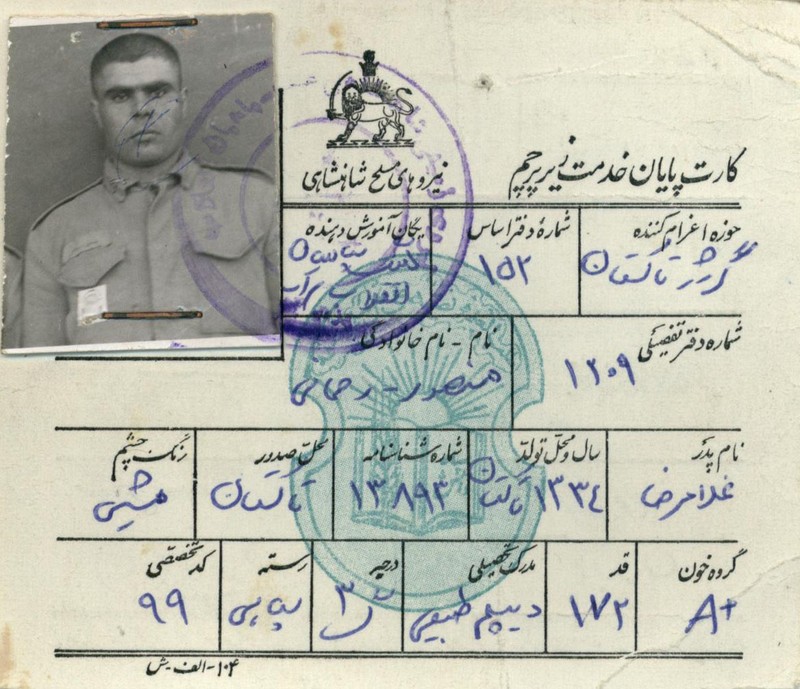 کارت پایان خدمت زیر پرچم
نیروهای مسلح شاهنشاهی
حوزه اعزام کننده
شمارهٔ دفتر اساس
یگان آموزش دهنده
تاکستان
۱۵۲
شماره دفتر تفضیلی
نام - نام خانوادگی
۱۲۰۹
منصور - رحمانی
نام پدر
سال و محل تولد
شماره شناسنامه
محل صدور
رنگ چشم
غلامرضا
۱۳۳۴ تاکستان
۱۳۸۹۳
تاکستان
میشی
گروه خون
قد
مدرک تحصیلی
درجه
رسته
کد تخصصی
A+
۱۷۲
دیپلم طبیعی
۳
۹۹
۱۰۴-الف ش